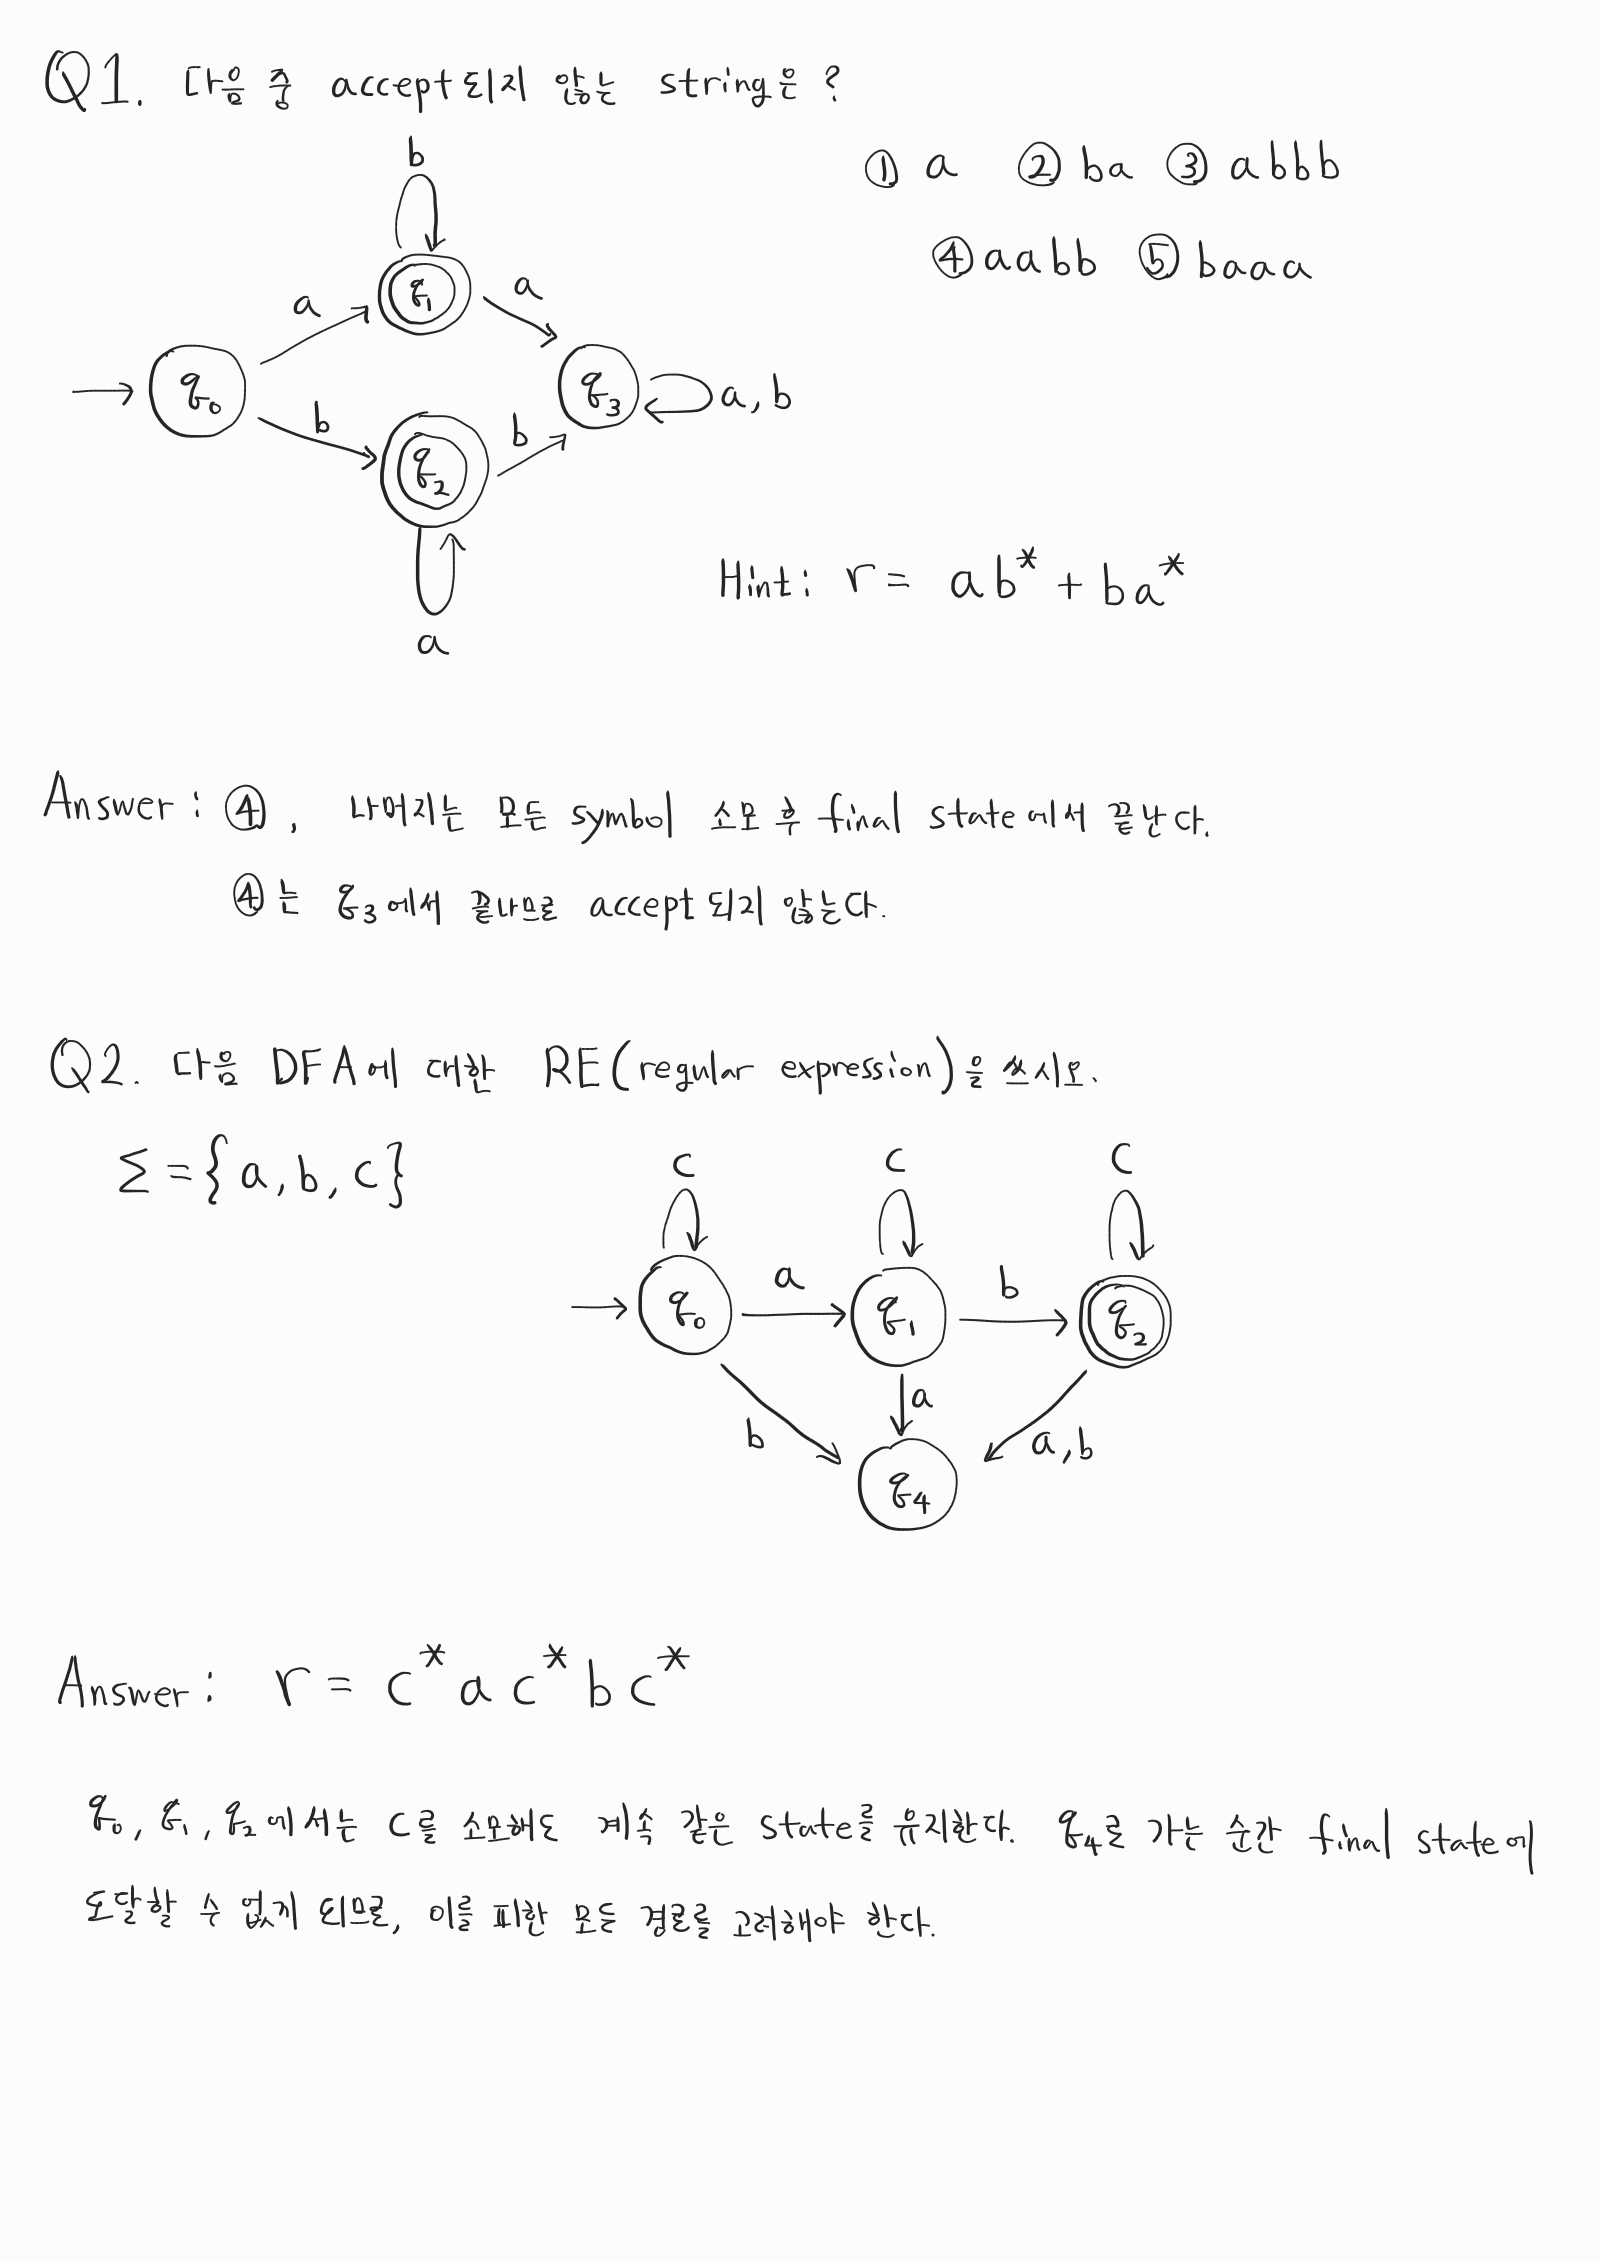 Q1. 다음 중 accept되지 않는 string은?
① a ② ba ③ abbb
④ aabb ⑤ baaa
b
a
q₁
a
q₀
q₃
a, b
b
q₂
b
a
Hint: r = ab* + ba*
Answer: ④, 나머지는 모든 symbol 소모 후 final state에서 끝난다.
④는 q₃에서 끝나므로 accept되지 않는다.
Q2. 다음 DFA에 대한 RE(regular expression)을 쓰시오.
Σ = {a, b, c}
c c c
q₀ a q₁ b q₂
b a a, b
q₄
Answer: r = c*ac*bc*
q₀, q₁, q₂에서는 c를 소모해도 계속 같은 state를 유지한다. q₄로 가는 순간 final state에
도달할 수 없게 되므로, 이를 피한 모든 경로를 고려해야 한다.